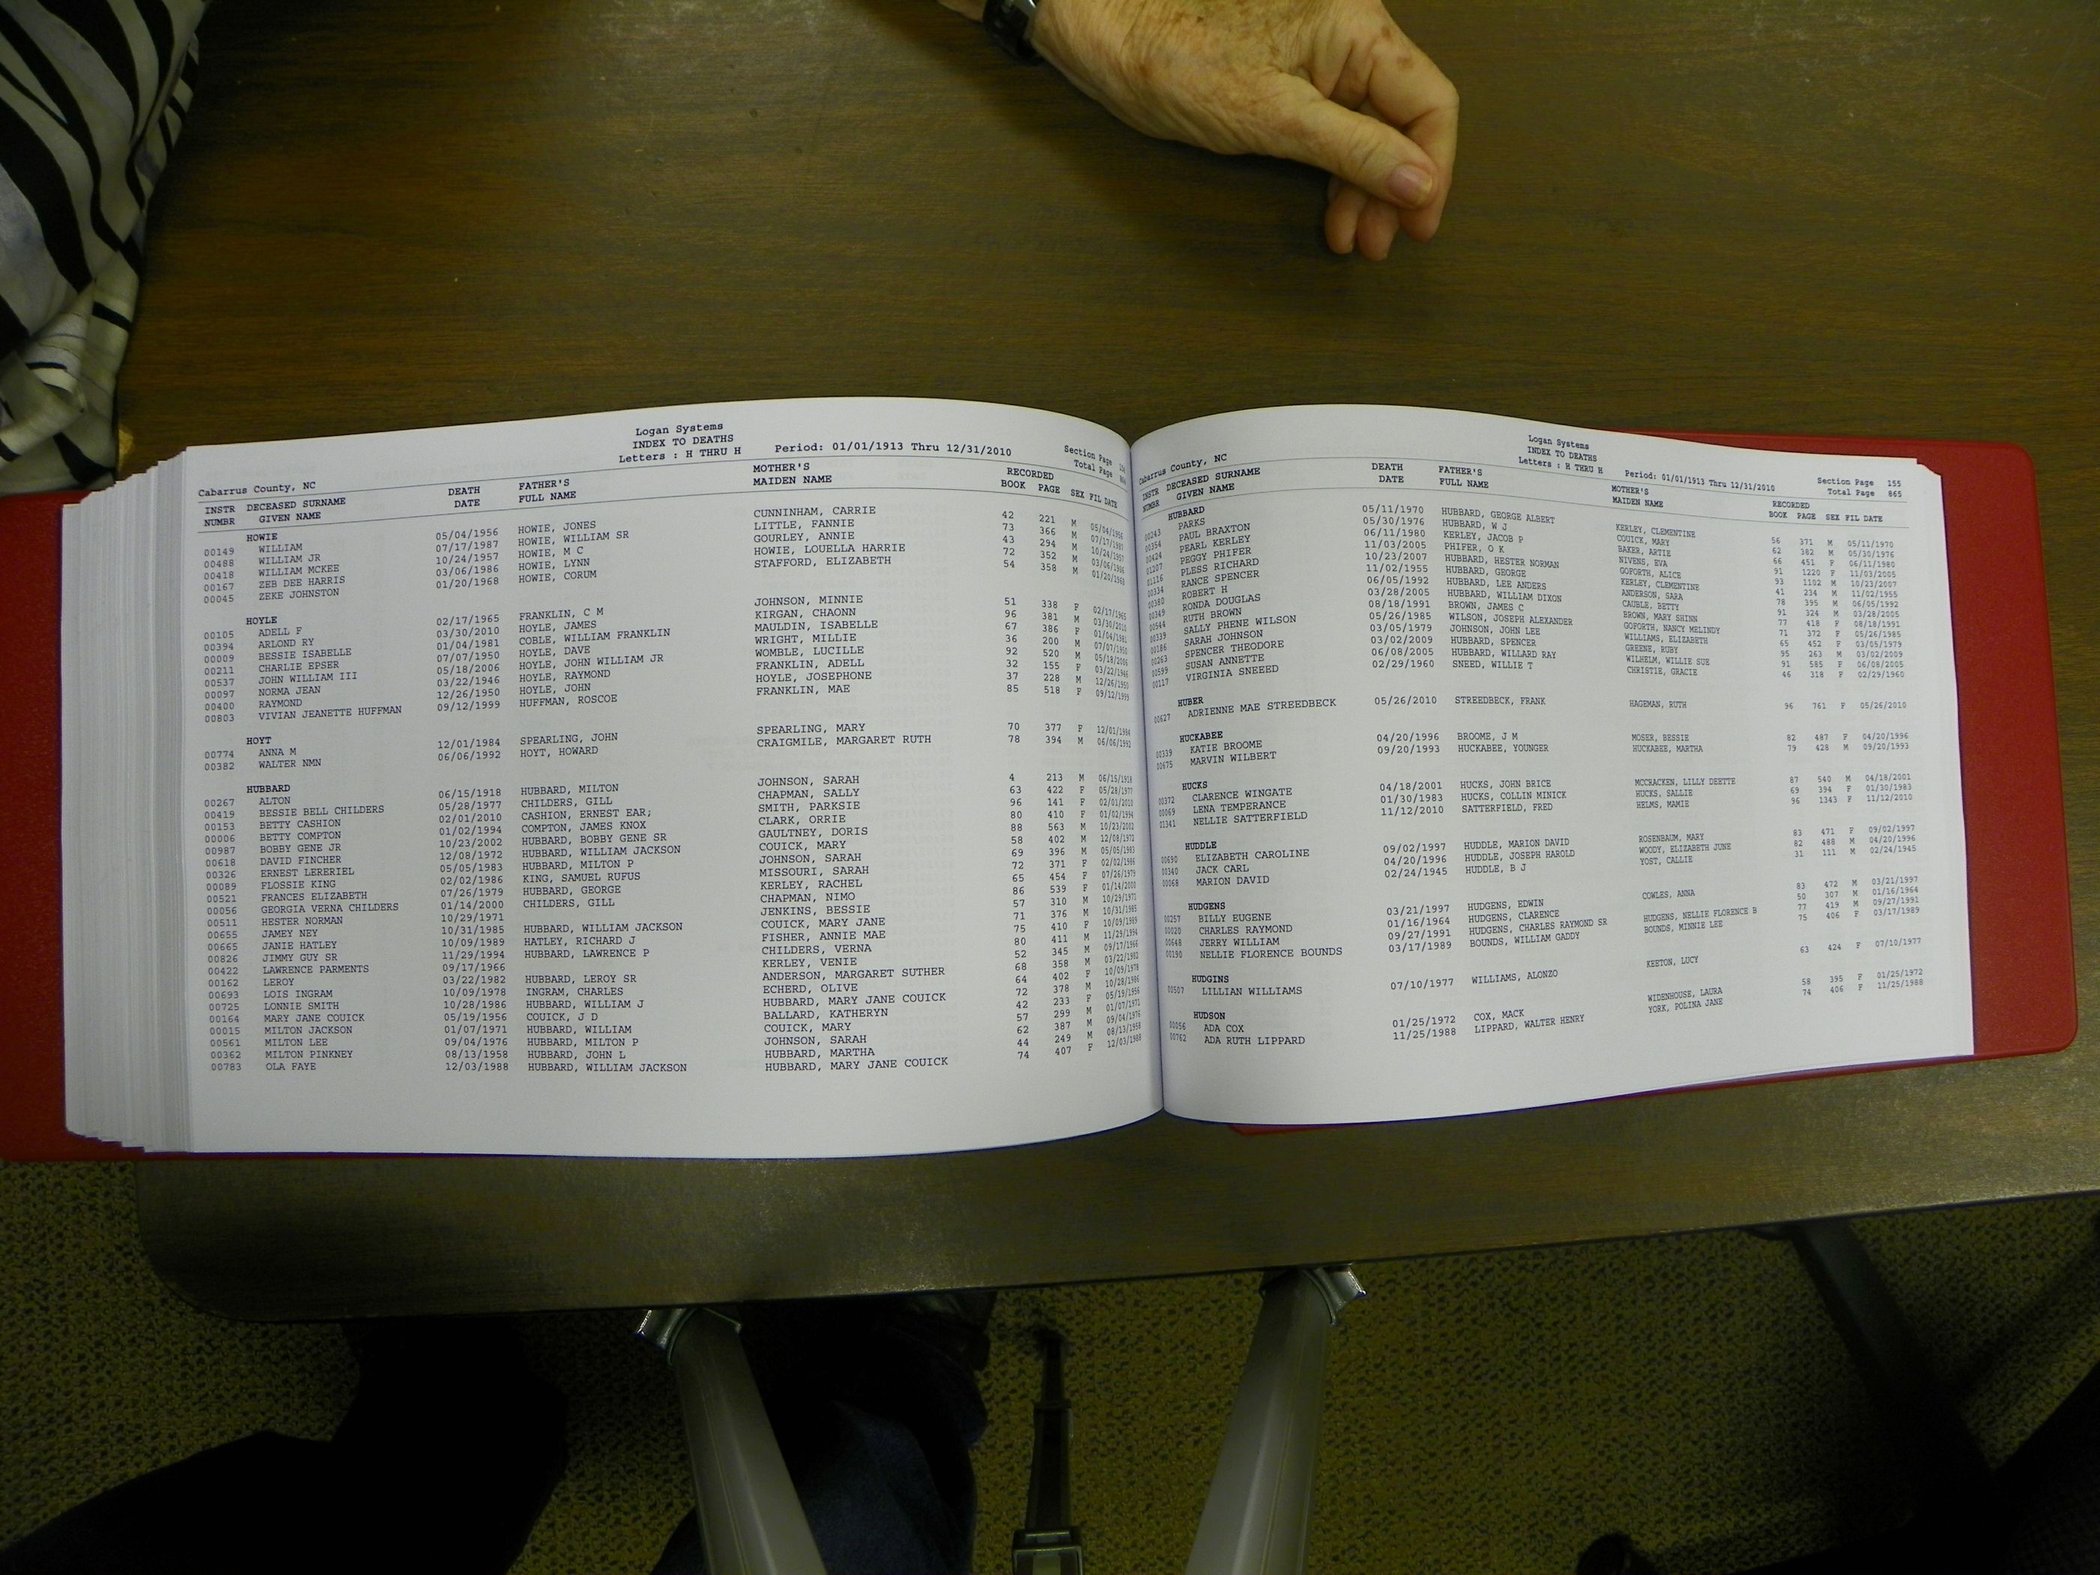 Logan Systems
INDEX TO DEATHS
Cabarrus County, NC Letters : H THRU H Period: 01/01/1913 Thru 12/31/2010 Section Page
Total Page
INSTR DECEASED SURNAME DEATH FATHER'S MOTHER'S RECORDED
NUMBR GIVEN NAME DATE FULL NAME MAIDEN NAME BOOK PAGE SEX FIL DATE
HOWIE
00149 WILLIAM 05/04/1956 HOWIE, JONES CUNNINHAM, CARRIE 42 221 M 05/04/1956
00488 WILLIAM JR 07/17/1987 HOWIE, WILLIAM SR LITTLE, FANNIE 73 366 M 07/17/1987
00418 WILLIAM MCKEE 10/24/1957 HOWIE, M C GOURLEY, ANNIE 43 294 M 10/24/1957
00167 ZEB DEE HARRIS 03/06/1986 HOWIE, LYNN HOWIE, LOUELLA HARRIE 72 352 M 03/06/1986
00045 ZEKE JOHNSTON 01/20/1968 HOWIE, CORUM STAFFORD, ELIZABETH 54 358 M 01/20/1968
HOYLE
00105 ADELL F 02/17/1965 FRANKLIN, C M JOHNSON, MINNIE 51 338 F 02/17/1965
00394 ARLOND RY 03/30/2010 HOYLE, JAMES KIRGAN, CHAONN 96 381 M 03/30/2010
00009 BESSIE ISABELLE 01/04/1981 COBLE, WILLIAM FRANKLIN MAULDIN, ISABELLE 67 386 F 01/04/1981
00211 CHARLIE EPSER 07/07/1950 HOYLE, DAVE WRIGHT, MILLIE 36 200 M 07/07/1950
00537 JOHN WILLIAM III 05/18/2006 HOYLE, JOHN WILLIAM JR WOMBLE, LUCILLE 92 520 M 05/18/2006
00097 NORMA JEAN 03/22/1946 HOYLE, RAYMOND FRANKLIN, ADELL 32 155 F 03/22/1946
00400 RAYMOND 12/26/1950 HOYLE, JOHN HOYLE, JOSEPHONE 37 228 M 12/26/1950
00803 VIVIAN JEANETTE HUFFMAN 09/12/1999 HUFFMAN, ROSCOE FRANKLIN, MAE 85 518 F 09/12/1999
HOYT
00774 ANNA M 12/01/1984 SPEARLING, JOHN SPEARLING, MARY 70 377 F 12/01/1984
00382 WALTER NMN 06/06/1992 HOYT, HOWARD CRAIGMILE, MARGARET RUTH 78 394 M 06/06/1992
HUBBARD
00267 ALTON 06/15/1918 HUBBARD, MILTON JOHNSON, SARAH 4 213 M 06/15/1918
00419 BESSIE BELL CHILDERS 05/28/1977 CHILDERS, GILL CHAPMAN, SALLY 63 422 F 05/28/1977
00153 BETTY CASHION 02/01/2010 CASHION, ERNEST EAR; SMITH, PARKSIE 96 141 F 02/01/2010
00006 BETTY COMPTON 01/02/1994 COMPTON, JAMES KNOX CLARK, ORRIE 80 410 F 01/02/1994
00987 BOBBY GENE JR 10/23/2002 HUBBARD, BOBBY GENE SR GAULTNEY, DORIS 88 563 M 10/23/2002
00618 DAVID FINCHER 12/08/1972 HUBBARD, WILLIAM JACKSON COUICK, MARY 58 402 M 12/08/1972
00326 ERNEST LERERIEL 05/05/1983 HUBBARD, MILTON P JOHNSON, SARAH 69 396 M 05/05/1983
00089 FLOSSIE KING 02/02/1986 KING, SAMUEL RUFUS MISSOURI, SARAH 72 371 F 02/02/1986
00521 FRANCES ELIZABETH 07/26/1979 HUBBARD, GEORGE KERLEY, RACHEL 65 454 F 07/26/1979
00056 GEORGIA VERNA CHILDERS 01/14/2000 CHILDERS, GILL CHAPMAN, NIMO 86 539 F 01/14/2000
00511 HESTER NORMAN 10/29/1971 JENKINS, BESSIE 57 310 M 10/29/1971
00655 JAMEY NEY 10/31/1985 HUBBARD, WILLIAM JACKSON COUICK, MARY JANE 71 376 M 10/31/1985
00665 JANIE HATLEY 10/09/1989 HATLEY, RICHARD J FISHER, ANNIE MAE 75 410 F 10/09/1989
00826 JIMMY GUY SR 11/29/1994 HUBBARD, LAWRENCE P CHILDERS, VERNA 80 411 M 11/29/1994
00422 LAWRENCE PARMENTS 09/17/1966 KERLEY, VENIE 52 345 M 09/17/1966
00162 LEROY 03/22/1982 HUBBARD, LEROY SR ANDERSON, MARGARET SUTHER 68 358 M 03/22/1982
00693 LOIS INGRAM 10/09/1978 INGRAM, CHARLES ECHERD, OLIVE 64 402 F 10/09/1978
00725 LONNIE SMITH 10/28/1986 HUBBARD, WILLIAM J HUBBARD, MARY JANE COUICK 72 378 M 10/28/1986
00164 MARY JANE COUICK 05/19/1956 COUICK, J D BALLARD, KATHERYN 42 233 F 05/19/1956
00015 MILTON JACKSON 01/07/1971 HUBBARD, WILLIAM COUICK, MARY 57 299 M 01/07/1971
00561 MILTON LEE 09/04/1976 HUBBARD, MILTON P JOHNSON, SARAH 62 387 M 09/04/1976
00362 MILTON PINKNEY 08/13/1958 HUBBARD, JOHN L HUBBARD, MARTHA 44 249 M 08/13/1958
00783 OLA FAYE 12/03/1988 HUBBARD, WILLIAM JACKSON HUBBARD, MARY JANE COUICK 74 407 F 12/03/1988
Logan Systems
INDEX TO DEATHS
Cabarrus County, NC Letters : H THRU H Period: 01/01/1913 Thru 12/31/2010 Section Page 155
Total Page 865
INSTR DECEASED SURNAME DEATH FATHER'S MOTHER'S RECORDED
NUMBR GIVEN NAME DATE FULL NAME MAIDEN NAME BOOK PAGE SEX FIL DATE
HUBBARD
00243 PARKS 05/11/1970 HUBBARD, GEORGE ALBERT KERLEY, CLEMENTINE 56 371 M 05/11/1970
00354 PAUL BRAXTON 05/30/1976 HUBBARD, W J COUICK, MARY 62 382 M 05/30/1976
00424 PEARL KERLEY 06/11/1980 KERLEY, JACOB P BAKER, ARTIE 66 451 F 06/11/1980
01207 PEGGY PHIFER 11/03/2005 PHIFER, O K NIVENS, EVA 91 1220 F 11/03/2005
01116 PLESS RICHARD 10/23/2007 HUBBARD, HESTER NORMAN GOFORTH, ALICE 93 1102 M 10/23/2007
00334 RANCE SPENCER 11/02/1955 HUBBARD, GEORGE KERLEY, CLEMENTINE 41 234 M 11/02/1955
00380 ROBERT H 06/05/1992 HUBBARD, LEE ANDERS ANDERSON, SARA 78 395 M 06/05/1992
00349 RONDA DOUGLAS 03/28/2005 HUBBARD, WILLIAM DIXON CAUBLE, BETTY 91 324 M 03/28/2005
00544 RUTH BROWN 08/18/1991 BROWN, JAMES C BROWN, MARY SHINN 77 418 F 08/18/1991
00339 SALLY PHENE WILSON 05/26/1985 WILSON, JOSEPH ALEXANDER GOFORTH, NANCY MELINDY 71 372 F 05/26/1985
00186 SARAH JOHNSON 03/05/1979 JOHNSON, JOHN LEE WILLIAMS, ELIZABETH 65 452 F 03/05/1979
00263 SPENCER THEODORE 03/02/2009 HUBBARD, SPENCER GREENE, RUBY 95 263 M 03/02/2009
00599 SUSAN ANNETTE 06/08/2005 HUBBARD, WILLARD RAY WILHELM, WILLIE SUE 91 585 F 06/08/2005
00117 VIRGINIA SNEED 02/29/1960 SNEED, WILLIE T CHRISTIE, GRACIE 46 318 F 02/29/1960
HUBER
00627 ADRIENNE MAE STREEDBECK 05/26/2010 STREEDBECK, FRANK HAGEMAN, RUTH 96 761 F 05/26/2010
HUCKABEE
00339 KATIE BROOME 04/20/1996 BROOME, J M MOSER, BESSIE 82 487 F 04/20/1996
00675 MARVIN WILBERT 09/20/1993 HUCKABEE, YOUNGER HUCKABEE, MARTHA 79 428 M 09/20/1993
HUCKS
00372 CLARENCE WINGATE 04/18/2001 HUCKS, JOHN BRICE MCCRACKEN, LILLY DEETTE 87 540 M 04/18/2001
00069 LENA TEMPERANCE 01/30/1983 HUCKS, COLLIN MINICK HUCKS, SALLIE 69 394 F 01/30/1983
01341 NELLIE SATTERFIELD 11/12/2010 SATTERFIELD, FRED HELMS, MAMIE 96 1343 F 11/12/2010
HUDDLE
00690 ELIZABETH CAROLINE 09/02/1997 HUDDLE, MARION DAVID ROSENBAUM, MARY 83 471 F 09/02/1997
00340 JACK CARL 04/20/1996 HUDDLE, JOSEPH HAROLD WOODY, ELIZABETH JUNE 82 488 M 04/20/1996
00068 MARION DAVID 02/24/1945 HUDDLE, B J YOST, CALLIE 31 111 M 02/24/1945
HUDGENS
00257 BILLY EUGENE 03/21/1997 HUDGENS, EDWIN COWLES, ANNA 83 472 M 03/21/1997
00020 CHARLES RAYMOND 01/16/1964 HUDGENS, CLARENCE 50 307 M 01/16/1964
00648 JERRY WILLIAM 09/27/1991 HUDGENS, CHARLES RAYMOND SR HUDGENS, NELLIE FLORENCE B 77 419 M 09/27/1991
00190 NELLIE FLORENCE BOUNDS 03/17/1989 BOUNDS, WILLIAM GADDY BOUNDS, MINNIE LEE 75 406 F 03/17/1989
HUDGINS
00507 LILLIAN WILLIAMS 07/10/1977 WILLIAMS, ALONZO KEETON, LUCY 63 424 F 07/10/1977
HUDSON
00056 ADA COX 01/25/1972 COX, MACK WIDENHOUSE, LAURA 58 395 F 01/25/1972
00762 ADA RUTH LIPPARD 11/25/1988 LIPPARD, WALTER HENRY YORK, POLINA JANE 74 406 F 11/25/1988